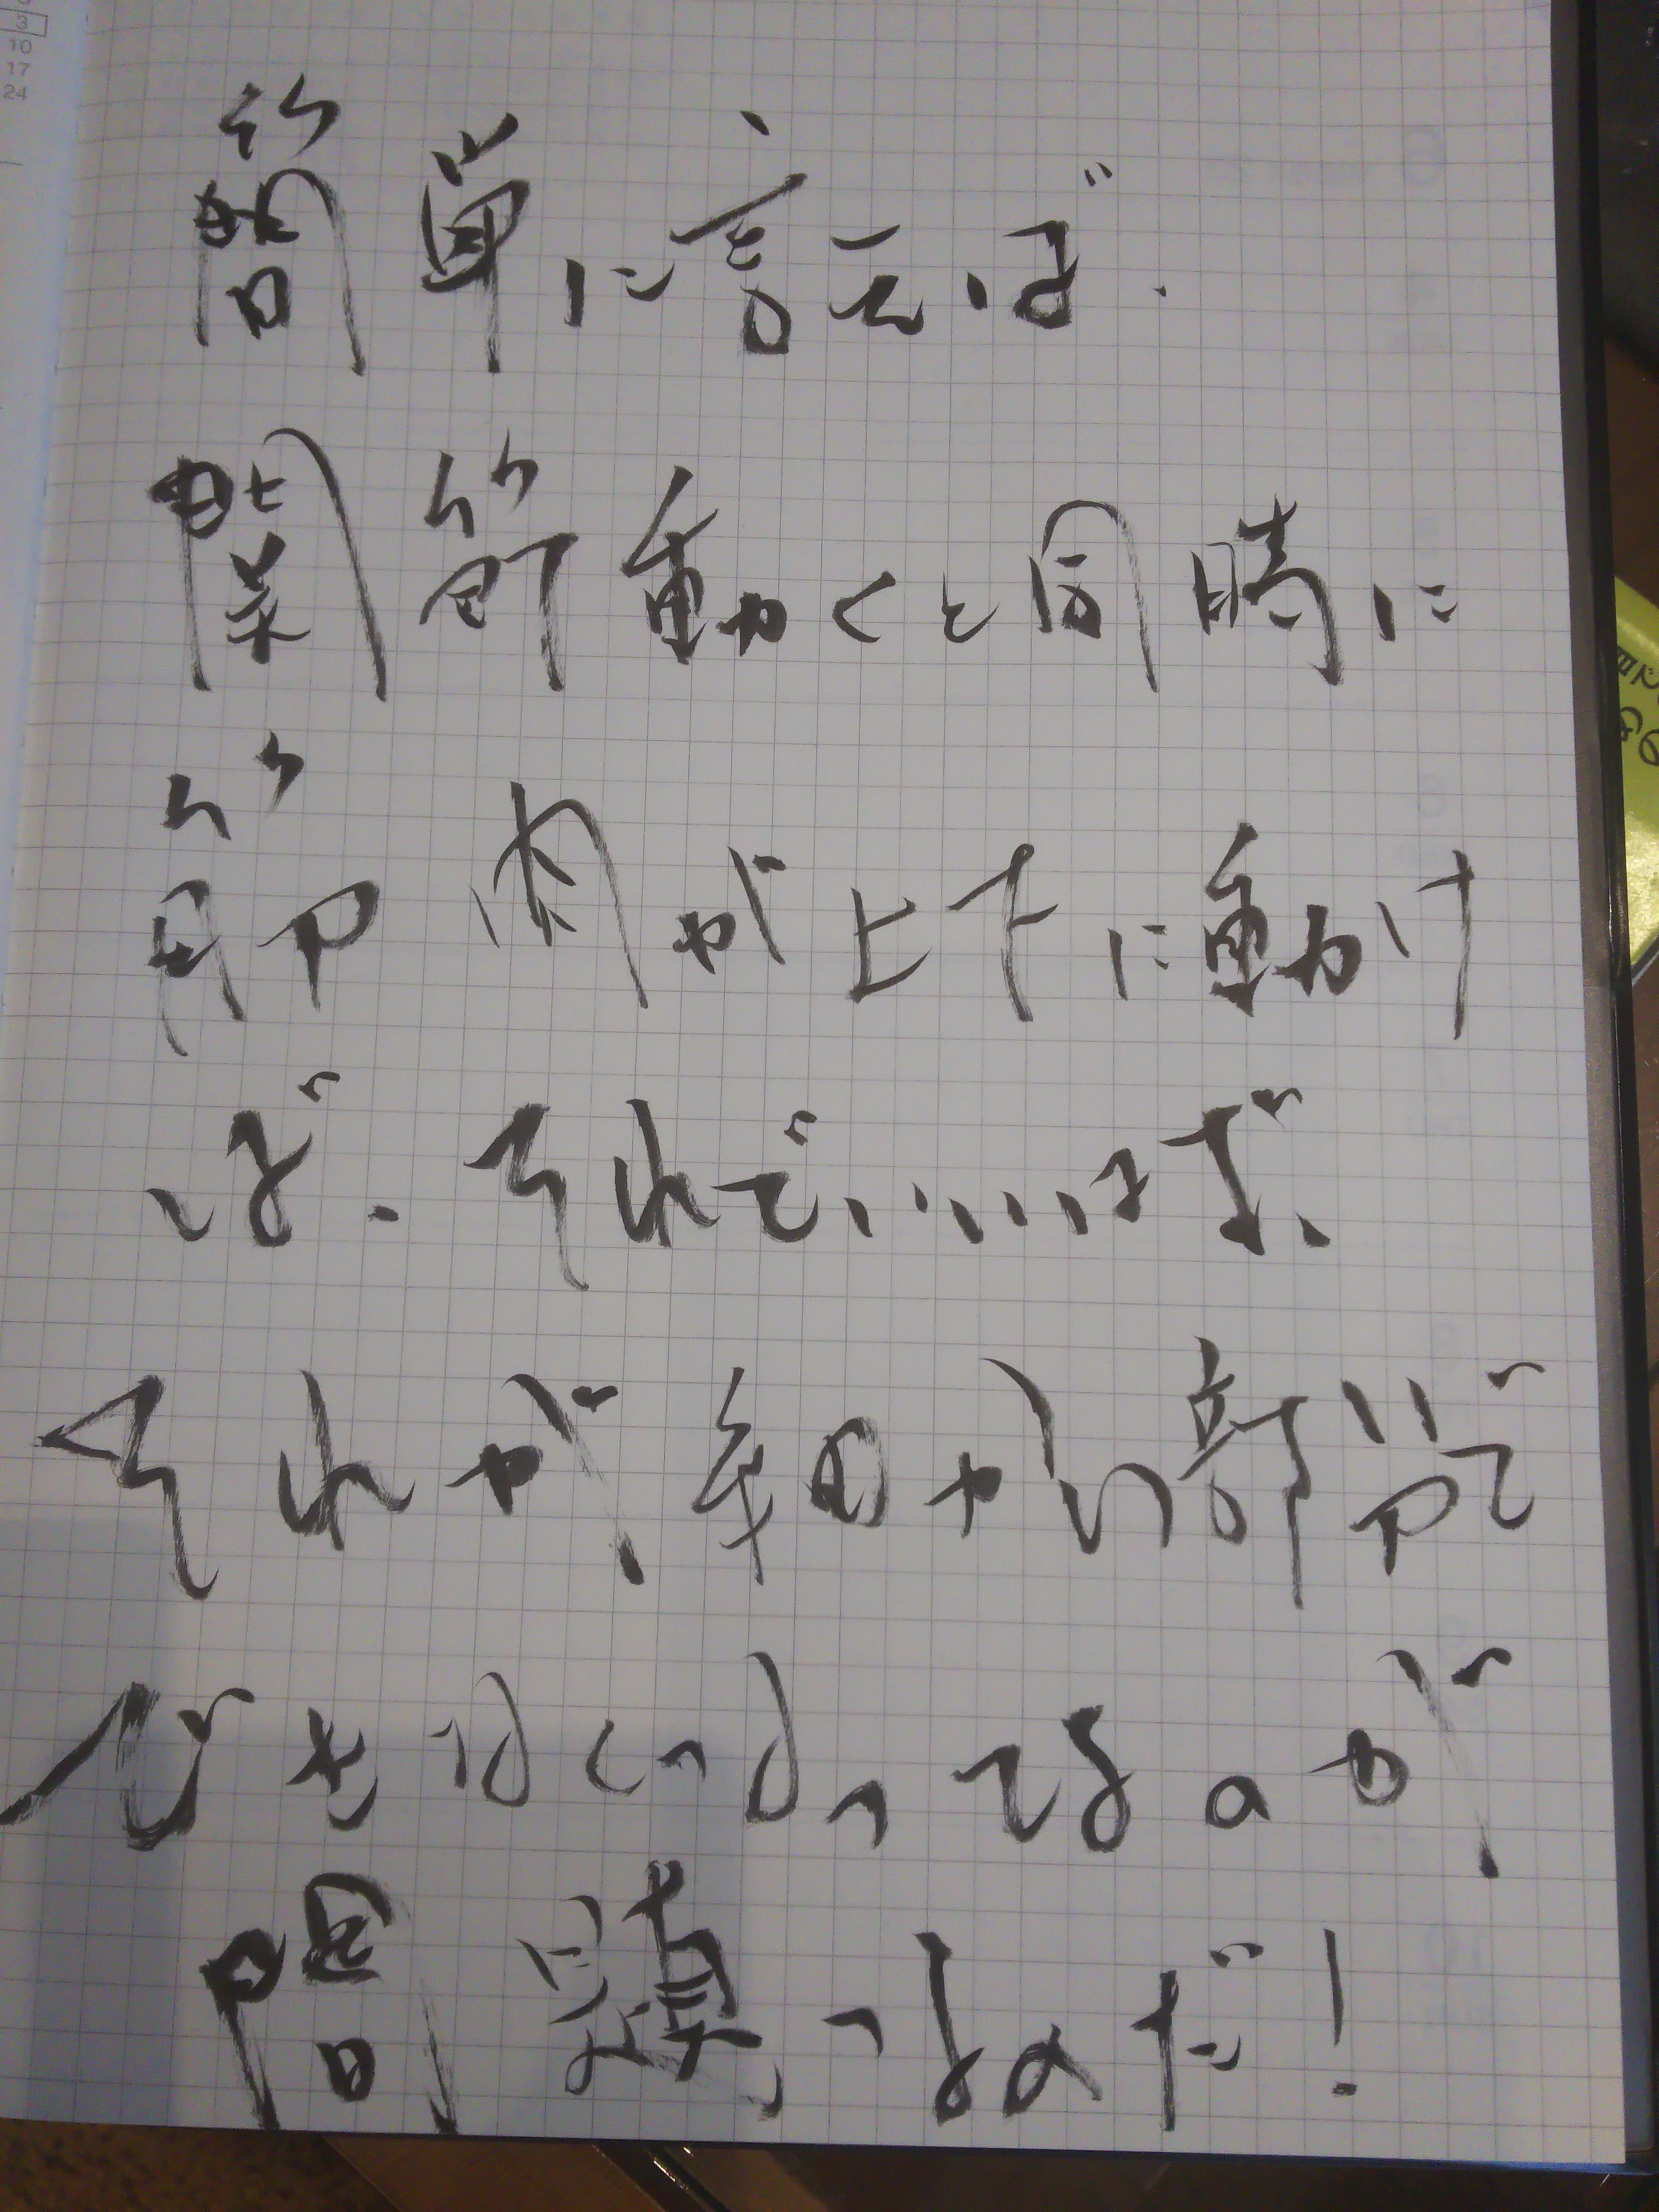 3
10
17
24
簡単に言えば、
関節動くと同時に
筋肉が上下に動け
ば、それでいいはず、
それが細かい部分で
できなくなってるのが
問題なのだ!